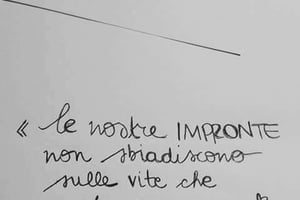 « le nostre IMPRONTE
non sbiadiscono
sulle vite che